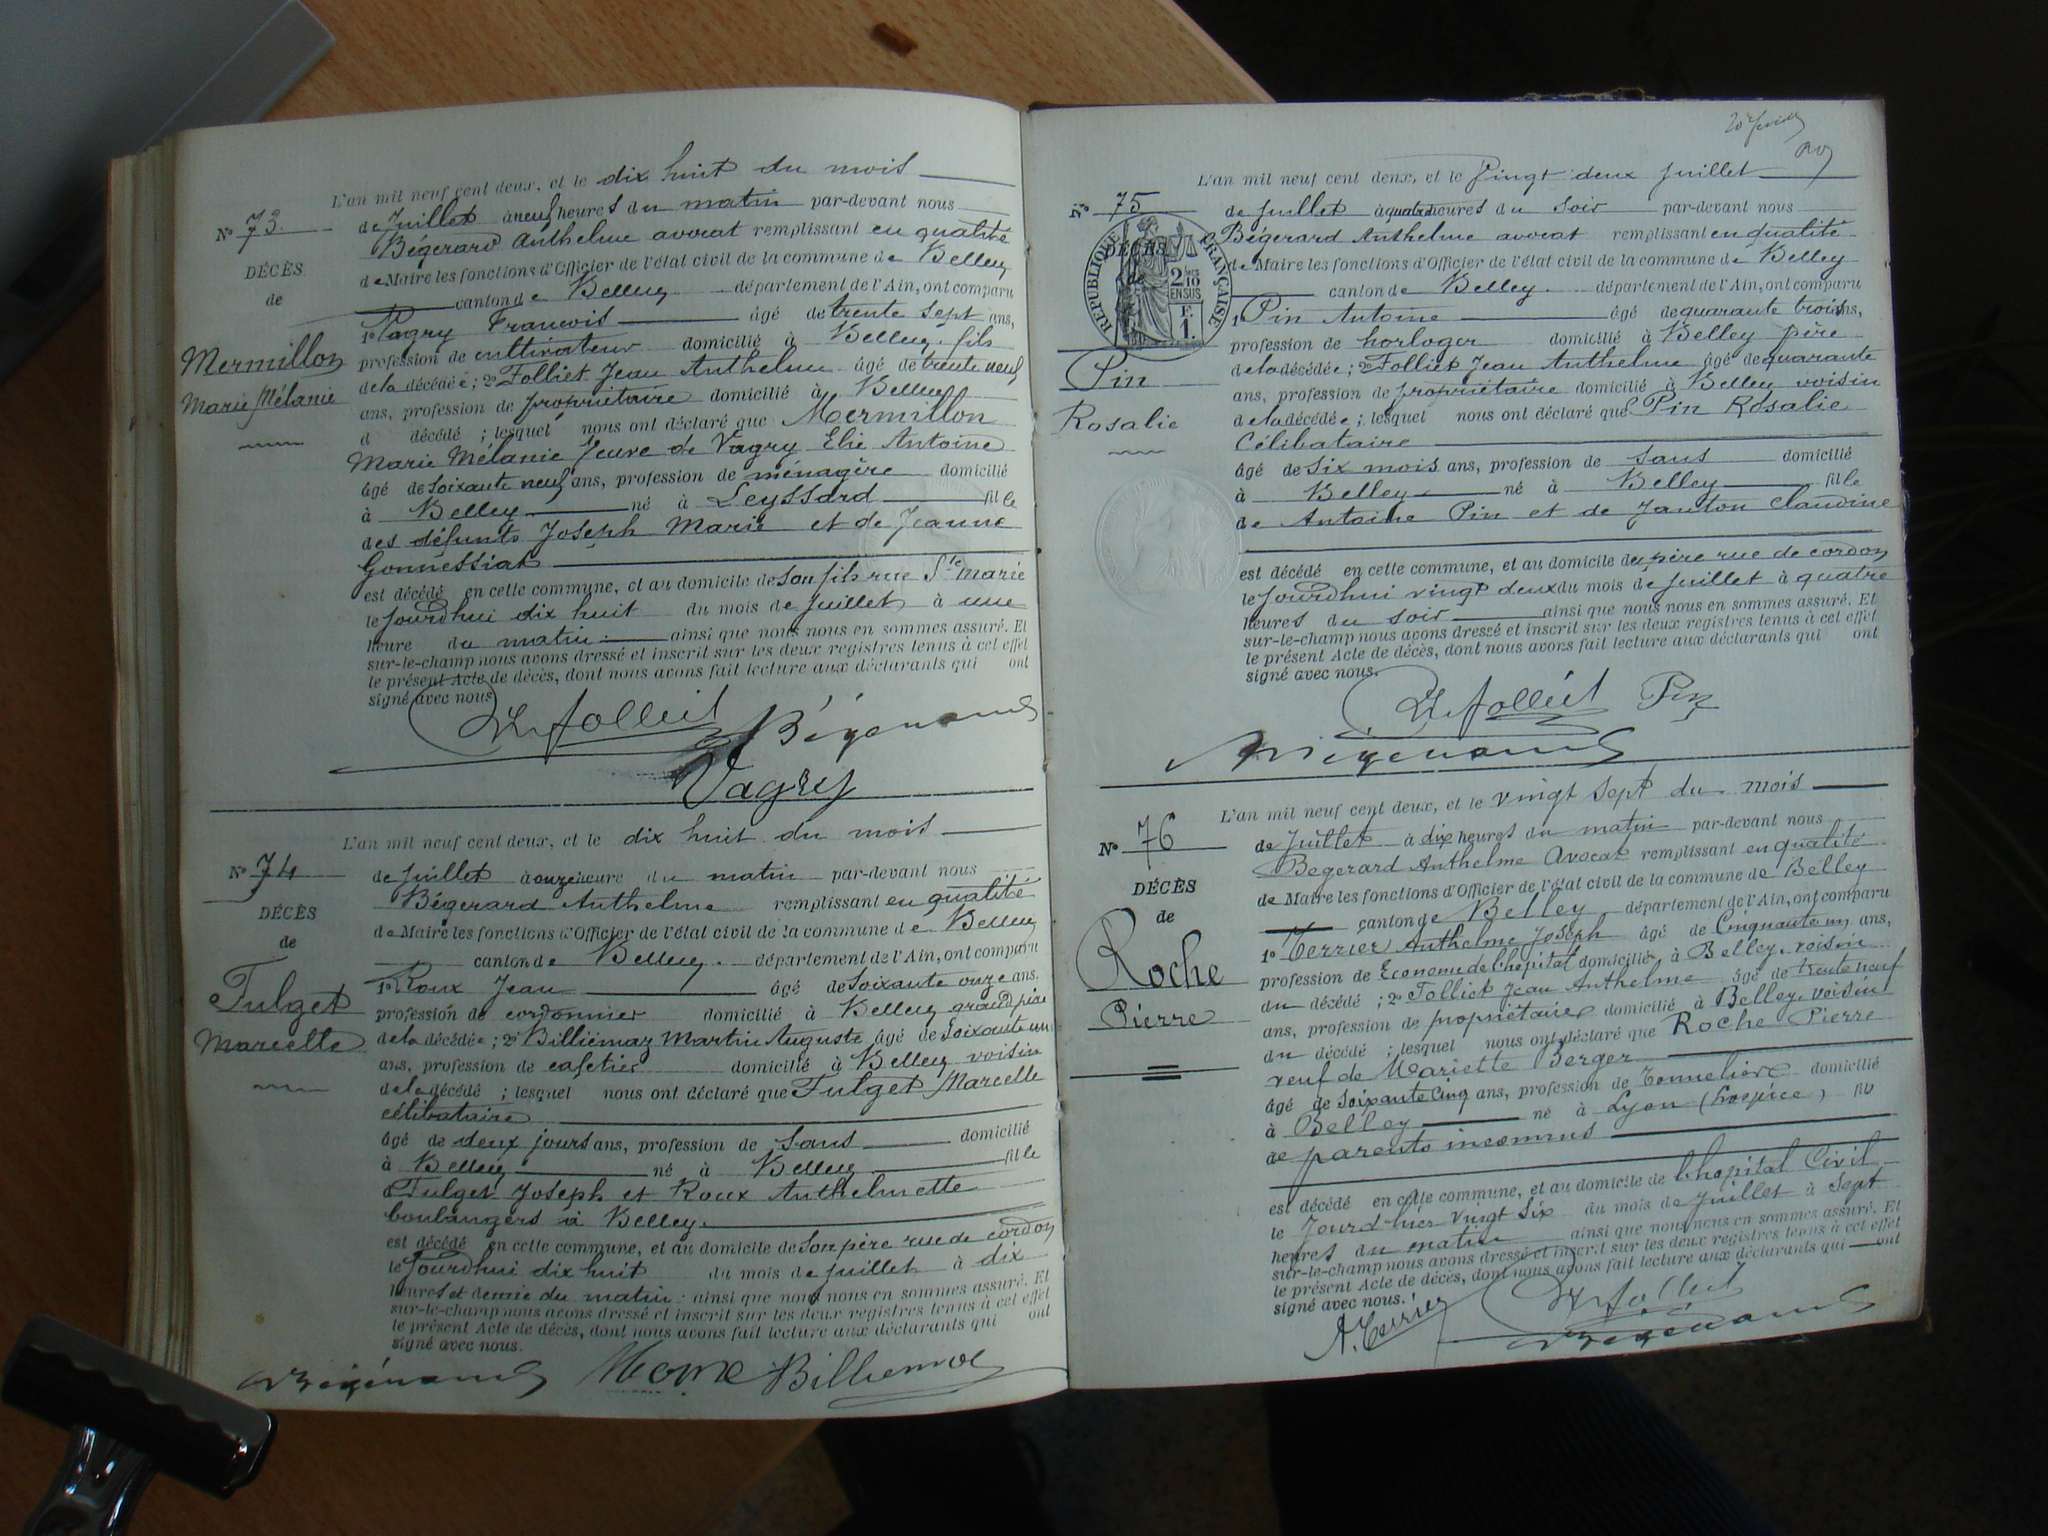 L'an mil neuf cent deux, et le dix huit du mois
No 73
de Juillet à neuf heures du matin par-devant nous
Bégerard Anthelme avocat remplissant en qualité
DÉCÈS
de Maire les fonctions d'Officier de l'état civil de la commune de Belley
de
canton de Belley département de l'Ain, ont comparu
1o Vagry Francois âgé de trente sept ans,
Mermillon
profession de cultivateur domicilié à Belley fils
Marie Mélanie
de la décédée ; 2o Folliet Jean Anthelme âgé de trente neuf
ans, profession de propriétaire domicilié à Belley
d décédé ; lesquel nous ont déclaré que Mermillon
Marie Mélanie Veuve de Vagry Elie Antoine
âgé de Soixante neuf ans, profession de ménagère domicilié
à Belley né à Leyssard fille
des défunts Joseph Marie et de Jeanne
Gonnessiat
est décédé en cette commune, et au domicile de son fils rue Ste Marie
le Jourdhui dix huit du mois de Juillet à une
heure du matin ainsi que nous nous en sommes assuré. Et
sur-le-champ nous avons dressé et inscrit sur les deux registres tenus à cet effet
le présent Acte de décès, dont nous avons fait lecture aux déclarants qui ont
signé avec nous
Folliet Bégerard
Vagry
L'an mil neuf cent deux, et le dix huit du mois
No 74
de Juillet à onze heure du matin par-devant nous
Bégerard Anthelme remplissant en qualité
DÉCÈS
de Maire les fonctions d'Officier de l'état civil de la commune de Belley
de
canton de Belley. département de l'Ain, ont comparu
1o Roux Jean âgé de Soixante onze ans.
Fulget
profession de cordonnier domicilié à Belley grand père
Marcelle
de la décédée ; 2o Billiemaz Martin Auguste âgé de Soixante un
ans, profession de cafetier domicilié à Belley voisin
de la décédé ; lesquel nous ont déclaré que Fulget Marcelle
célibataire
âgé de deux jours ans, profession de Sans domicilié
à Belley né à Belley fille
d Fulget Joseph et Roux Anthelmette
boulangers à Belley.
est décédé en cette commune, et au domicile de son père rue de cordon
le Jourdhui dix huit du mois de Juillet à dix
heures et demie du matin : ainsi que nous nous en sommes assuré. Et
sur-le-champ nous avons dressé et inscrit sur les deux registres tenus à cet effet
le présent Acte de décès, dont nous avons fait lecture aux déclarants qui ont
signé avec nous.
Bégerard Billiemaz
L'an mil neuf cent deux, et le Vingt deux Juillet
No 75
de Juillet à quatre heures du soir par-devant nous
Bégerard Anthelme avocat remplissant en qualité
DÉCÈS
de Maire les fonctions d'Officier de l'état civil de la commune de Belley
de
RÉPUBLIQUE FRANÇAISE
2/10 EN SUS
F. 1.
canton de Belley. département de l'Ain, ont comparu
1 Pin Antoine âgé de quarante trois ans,
profession de horloger domicilié à Belley père
Pin
de la décédée ; 2o Folliet Jean Anthelme âgé de quarante
ans, profession de propriétaire domicilié à Belley voisin
Rosalie
de la décédée ; lesquel nous ont déclaré que Pin Rosalie
Célibataire
âgé de six mois ans, profession de sans domicilié
à Belley né à Belley fille
de Antoine Pin et de Janton Claudine
est décédé en cette commune, et au domicile du père rue de cordon
le Jourdhui vingt deux du mois de Juillet à quatre
heures du soir ainsi que nous nous en sommes assuré. Et
sur-le-champ nous avons dressé et inscrit sur les deux registres tenus à cet effet
le présent Acte de décès, dont nous avons fait lecture aux déclarants qui ont
signé avec nous.
Folliet Pin
Bégerard
L'an mil neuf cent deux, et le vingt sept du mois
No 76
de Juillet à dix heures du matin par-devant nous
Begerard Anthelme Avocat remplissant en qualité
DÉCÈS
de Maire les fonctions d'Officier de l'état civil de la commune de Belley
de
canton de Belley département de l'Ain, ont comparu
1o Terrier Anthelme Joseph âgé de Cinquante un ans,
Roche
profession de Econome de l'hopital domicilié à Belley, voisin
du décédé ; 2o Folliet Jean Anthelme âgé de trente neuf
Pierre
ans, profession de propriétaire domicilié à Belley, voisin
du décédé ; lesquel nous ont déclaré que Roche Pierre
veuf de Mariette Berger
âgé de Soixante Cinq ans, profession de Tonnelier domicilié
à Belley né à Lyon (hospice) fils
de parents inconnus
est décédé en cette commune, et au domicile de l'hopital Civil
le Jourd hier vingt six du mois de Juillet à Sept
heures du matin ainsi que nous nous en sommes assuré. Et
sur-le-champ nous avons dressé et inscrit sur les deux registres tenus à cet effet
le présent Acte de décès, dont nous avons fait lecture aux déclarants qui ont
signé avec nous.
A. Terrier Folliet
Bégerard